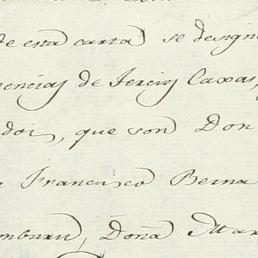 de esta carta se design
encias de Tercios Caxas,
dos, que son Don
Francisco Berna
mburu, Doña Mar